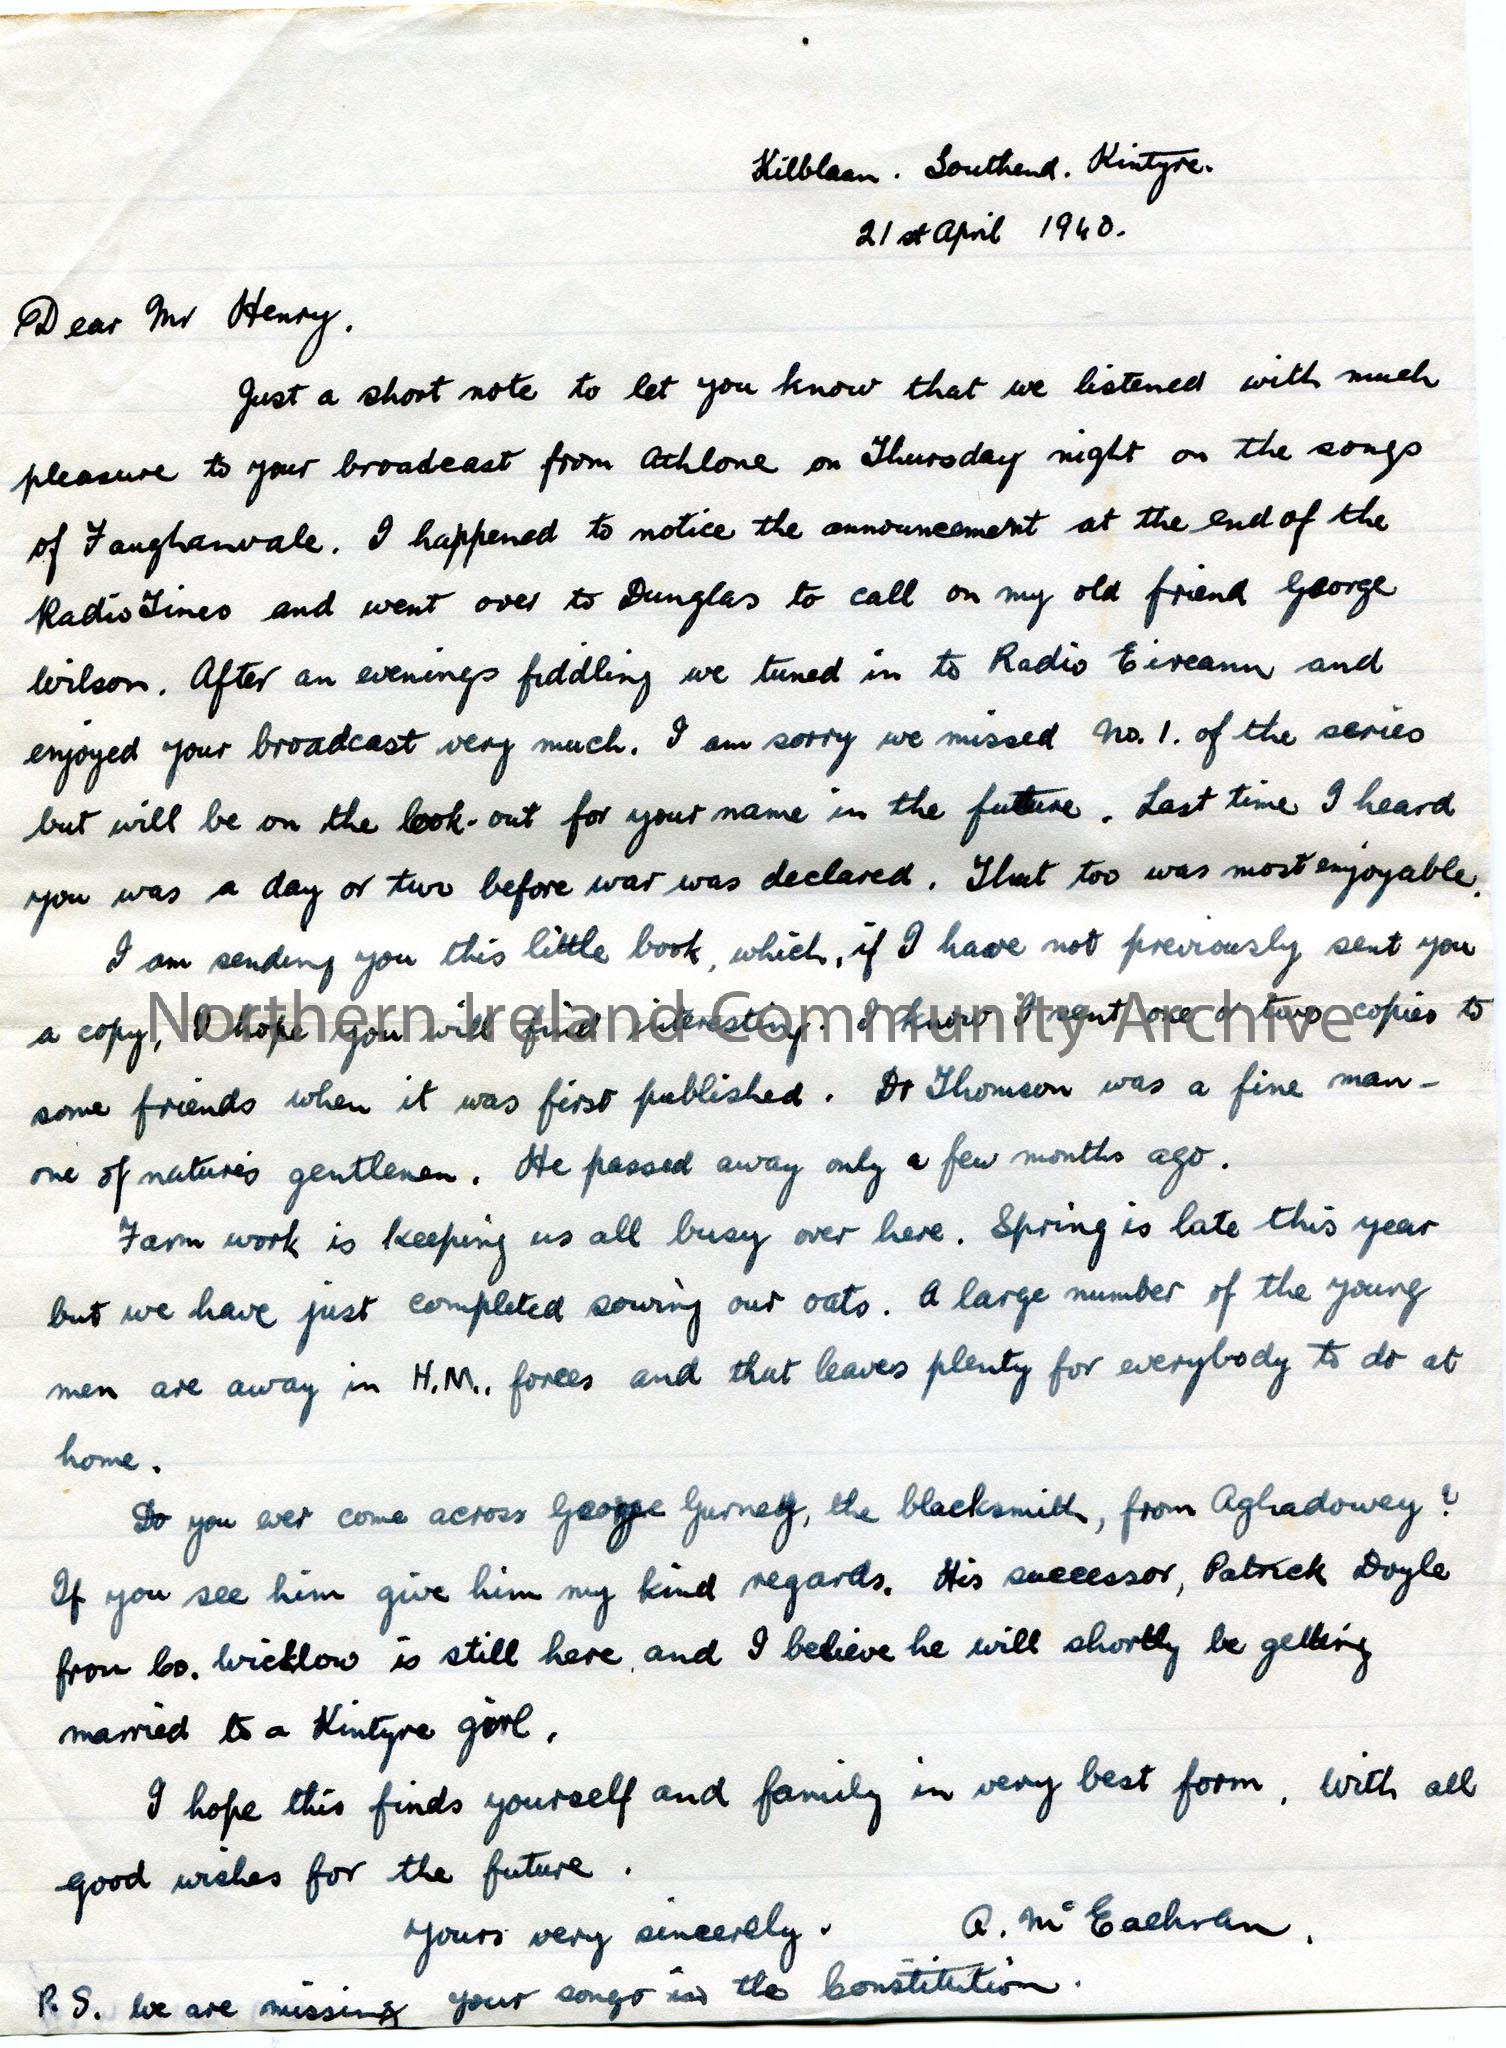 Kilblaan. Southend. Kintyre.
21st April 1940.
Dear Mr Henry,
Just a short note to let you know that we listened with much
pleasure to your broadcast from Athlone on Thursday night on the songs
of Faughanvale. I happened to notice the announcement at the end of the
Radio Times and went over to Dunglas to call on my old friend George
Wilson. After an evenings fiddling we tuned in to Radio Eireann and
enjoyed your broadcast very much. I am sorry we missed No. 1. of the series
but will be on the look-out for your name in the future. Last time I heard
you was a day or two before war was declared. That too was most enjoyable.
I am sending you this little book, which, if I have not previously sent you
a copy, I hope you will find interesting. I know I sent one or two copies to
Northern Ireland Community Archive
some friends when it was first published. Dr Thomson was a fine man -
one of nature's gentlemen. He passed away only a few months ago.
Farm work is keeping us all busy over here. Spring is late this year
but we have just completed sowing our oats. A large number of the young
men are away in H.M.. forces and that leaves plenty for everybody to do at
home.
Do you ever come across George Gurney, the blacksmith, from Aghadowey?
If you see him give him my kind regards. His successor, Patrick Doyle
from Co. Wicklow is still here and I believe he will shortly be getting
married to a Kintyre girl.
I hope this finds yourself and family in very best form, With all
good wishes for the future.
Yours very sincerely. A. McEachran.
P.S. We are missing your songs in the Constitution.